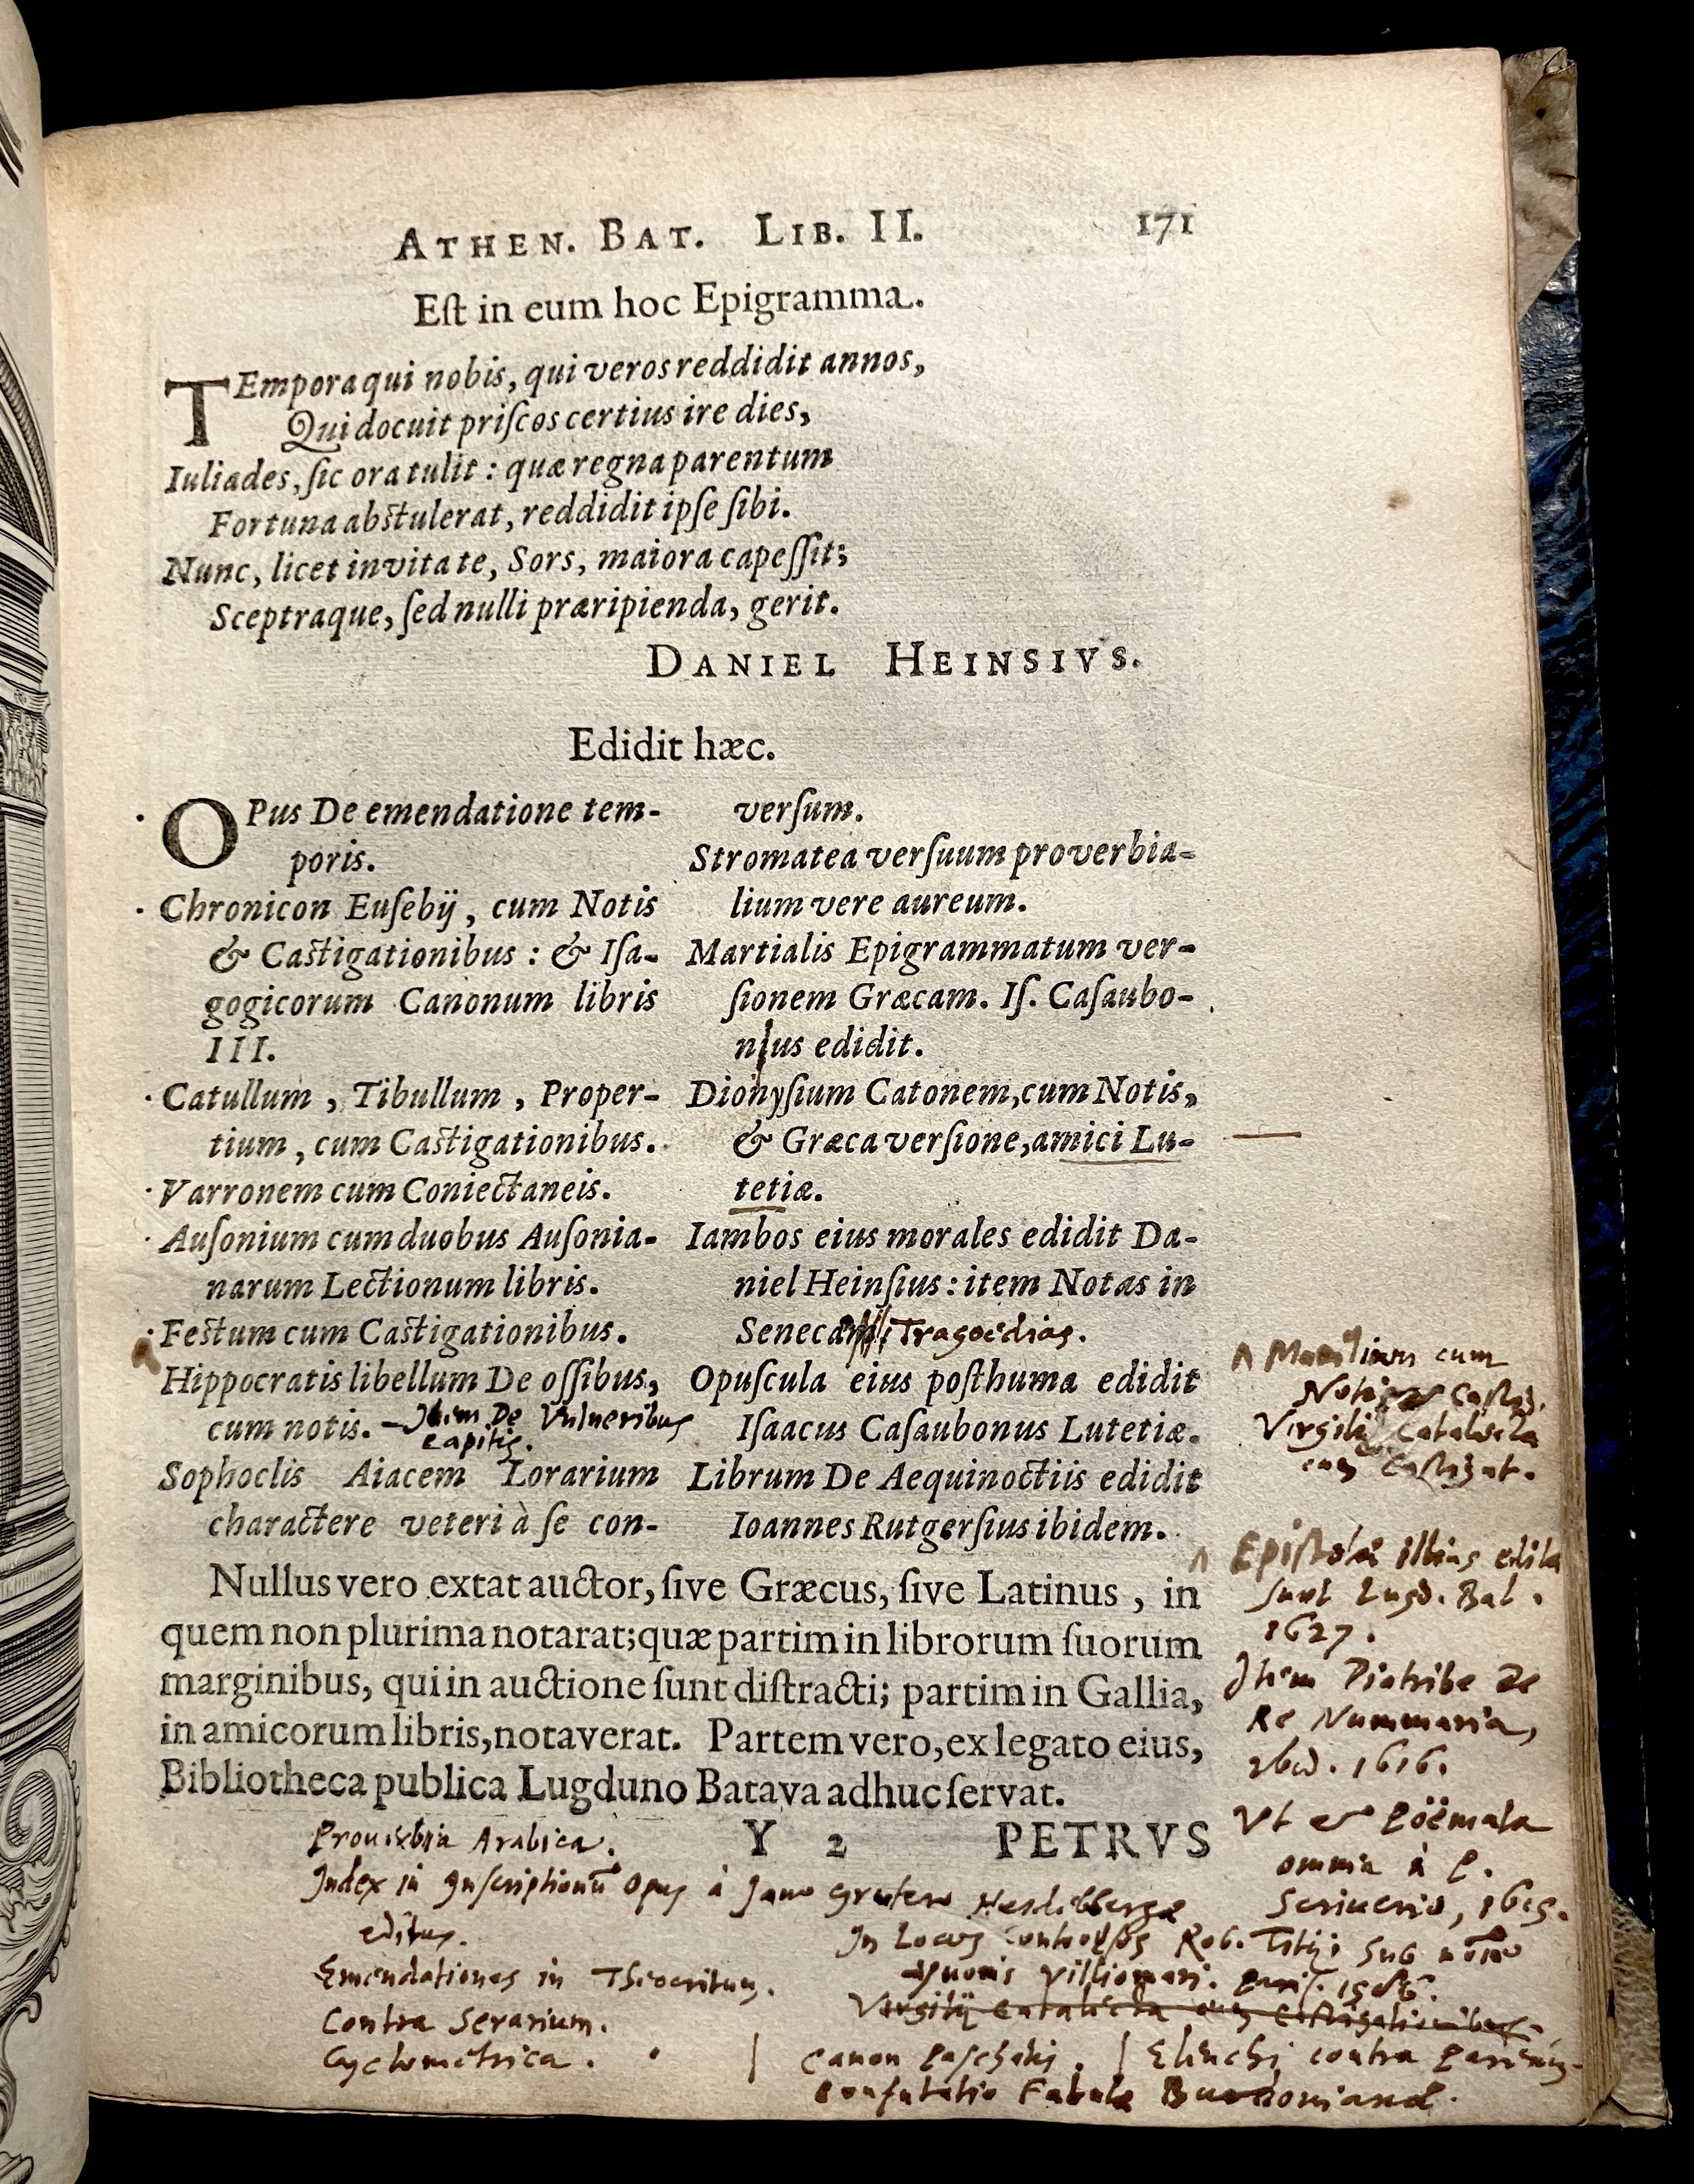 ATHEN. BAT. LIB. II. 171
Eſt in eum hoc Epigramma.
TEmpora qui nobis, qui veros reddidit annos,
Qui docuit priſcos certius ire dies,
Iuliades, ſic ora tulit : quæ regna parentum
Fortuna abſtulerat, reddidit ipſe ſibi.
Nunc, licet invita te, Sors, maiora capeſſit;
Sceptraque, ſed nulli præripienda, gerit.
DANIEL HEINSIVS.
Edidit hæc.
OPus De emendatione tem-
poris.
Chronicon Euſebij, cum Notis
& Caſtigationibus : & Iſa-
gogicorum Canonum libris
III.
Catullum, Tibullum, Proper-
tium, cum Caſtigationibus.
Varronem cum Coniectaneis.
Auſonium cum duobus Auſonia-
narum Lectionum libris.
Feſtum cum Caſtigationibus.
Hippocratis libellum De oſſibus,
cum notis. – Item De Vulneribus
capitis.
Sophoclis Aiacem Lorarium
charactere veteri à ſe con-
verſum.
Stromatea verſuum proverbia-
lium vere aureum.
Martialis Epigrammatum ver-
ſionem Græcam. Iſ. Caſaubo-
nus edidit.
Dionyſium Catonem, cum Notis,
& Græca verſione, amici Lu-
tetiæ.
Iambos eius morales edidit Da-
niel Heinſius : item Notas in
Senecam Tragoedias.
Opuſcula eius poſthuma edidit
Iſaacus Caſaubonus Lutetiæ.
Librum De Aequinoctiis edidit
Ioannes Rutgerſius ibidem.
Manilium cum
Notis et Caſtig.
Virgilij Catalecta
cum Caſtigat.
Nullus vero extat auctor, ſive Græcus, ſive Latinus, in
quem non plurima notarat; quæ partim in librorum ſuorum
marginibus, qui in auctione ſunt diſtracti; partim in Gallia,
in amicorum libris, notaverat. Partem vero, ex legato eius,
Bibliotheca publica Lugduno Batava adhuc ſervat.
Y 2 PETRVS
Epiſtolæ illius editæ
ſunt Lugd. Bat.
1627.
Item Diatribe De
Re Nummaria,
ibid. 1616.
Vt et Poëmata
omnia à P.
Scriuerio, 1615.
Prouerbia Arabica.
Index in Inſcriptionū Opus à Jano Grutero Heidelbergæ
editus.
Emendationes in Theocritum.
Contra Serarium.
Cyclometrica.
In Locos controuerſos Rob. Titij, sub nōīe
Yuonis Villiomari. Pariſ. 1586.
Virgilij Catalecta cum Caſtigationibus.
Canon Paſchalis. | Elenchi contra
Confutatio Fabulæ Burdonianæ.